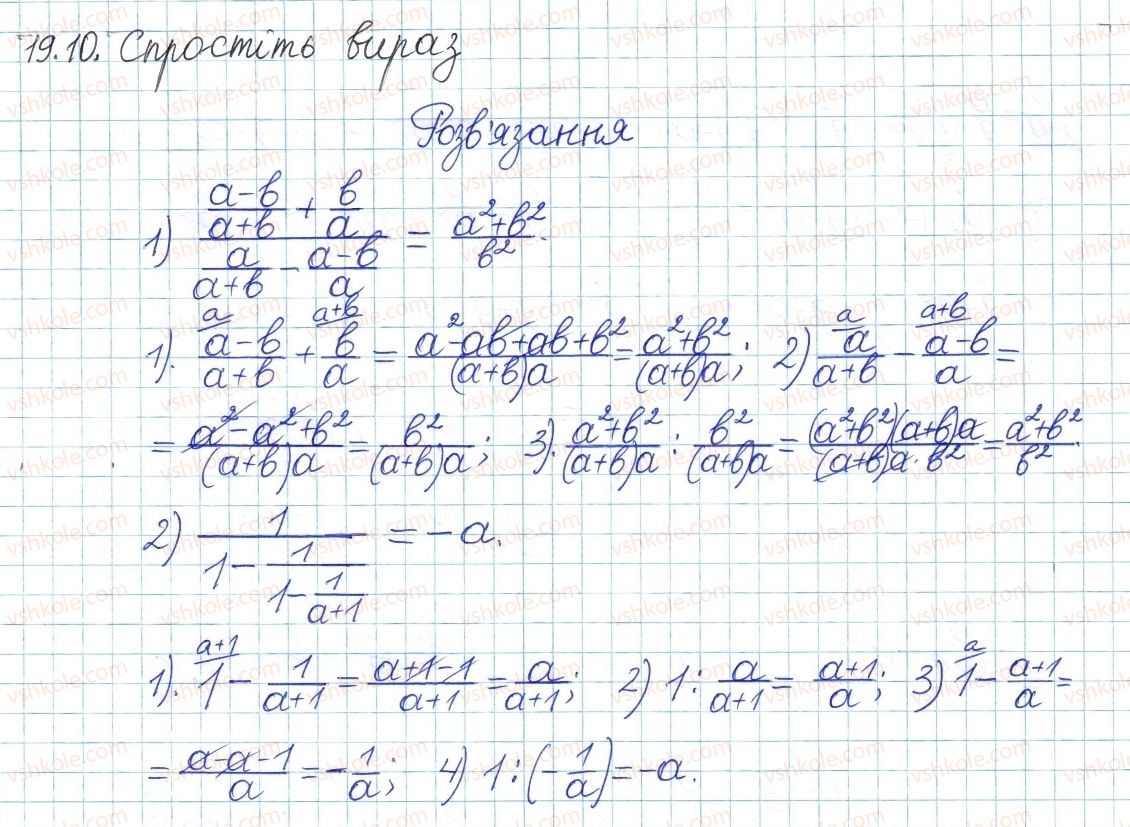 19.10. Спростіть вираз
Розв'язання
1) ((a-b)/(a+b) + b/a) / (a/(a+b) - (a-b)/a) = (a²+b²)/b².
1). (a-b)/(a+b) + b/a = (a²-ab+ab+b²)/((a+b)a) = (a²+b²)/((a+b)a); 2) a/(a+b) - (a-b)/a =
= (a²-a²+b²)/((a+b)a) = b²/((a+b)a); 3). (a²+b²)/((a+b)a) : b²/((a+b)a) = ((a²+b²)(a+b)a)/((a+b)a·b²) = (a²+b²)/b².
2) 1/(1 - 1/(1 - 1/(a+1))) = -a.
1). 1 - 1/(a+1) = (a+1-1)/(a+1) = a/(a+1); 2) 1 : a/(a+1) = (a+1)/a; 3) 1 - (a+1)/a =
= (a-a-1)/a = -1/a; 4) 1 : (-1/a) = -a.